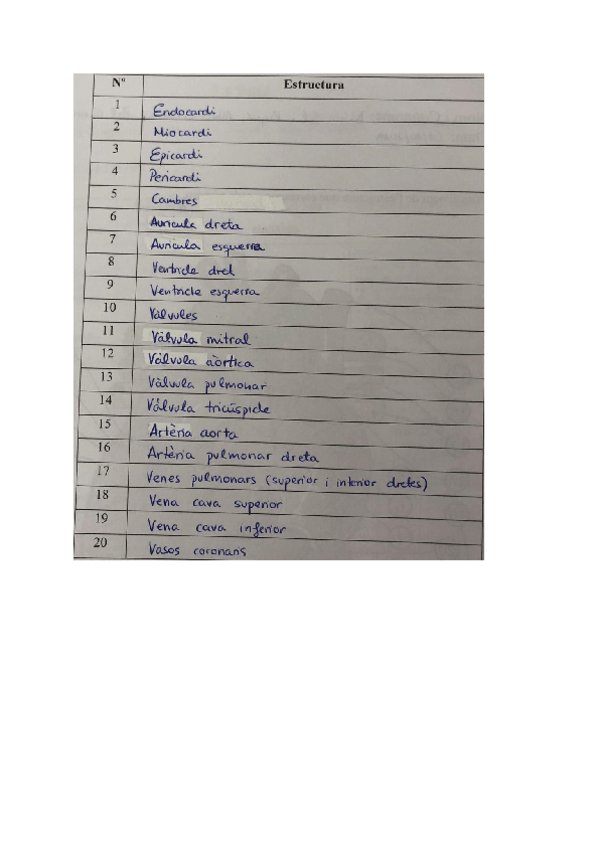 Nº Estructura
1 Endocardi
2 Miocardi
3 Epicardi
4 Pericardi
5 Cambres
6 Aurícula dreta
7 Aurícula esquerra
8 Ventricle dret
9 Ventricle esquerra
10 Vàlvules
11 Vàlvula mitral
12 Vàlvula aòrtica
13 Vàlvula pulmonar
14 Vàlvula tricúspide
15 Artèria aorta
16 Artèria pulmonar dreta
17 Venes pulmonars (superior i inferior dretes)
18 Vena cava superior
19 Vena cava inferior
20 Vasos coronaris